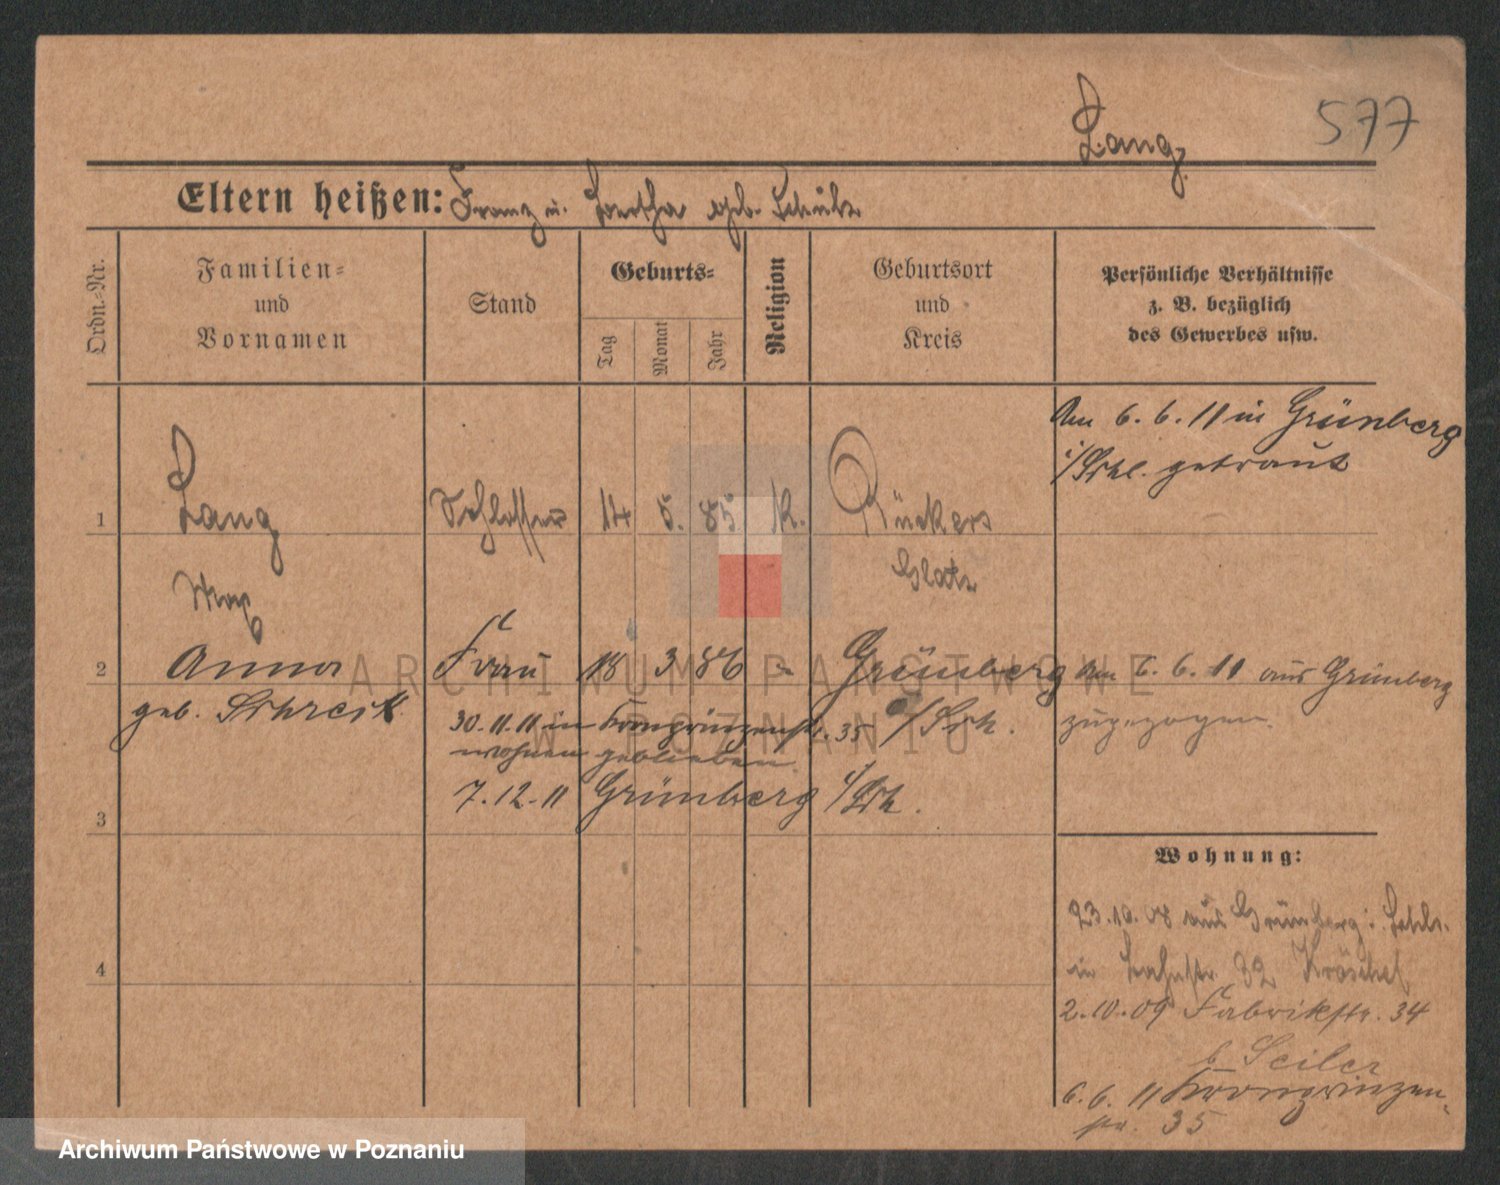 577
Lang
Eltern heißen: Franz u. Bertha geb. Schulz
Ordn.-Nr.
Familien-
und
Vornamen
Stand
Geburts-
Tag
Monat
Jahr
Religion
Geburtsort
und
Kreis
Persönliche Verhältnisse
z. B. bezüglich
des Gewerbes usw.
Am 6. 6. 11 in Grünberg
i/Schl. getraut
1
Lang
Schlosser
14
5.
85
K.
Rückers
Glatz
Max
2
Anna
Frau
18
3
86
Grünberg
Am 6. 6. 11 aus Grünberg
geb. Schreck
i/Sch.
zugezogen.
30.11.11 in Kronprinzenstr. 35
wohnen geblieben.
7.12.11 Grünberg i/Sch.
3
Wohnung:
23.10.08 aus Grünberg i. Schls.
in 32
4
2.10.09 Fabrikstr. 34
b. Seiler
6. 6. 11 Kronprinzen-
str. 35
ARCHIWUM PAŃSTWOWE
W POZNANIU
Archiwum Państwowe w Poznaniu